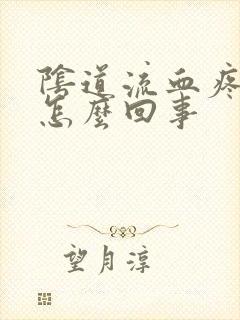 陰道流血疼
怎麼回事
望月淳